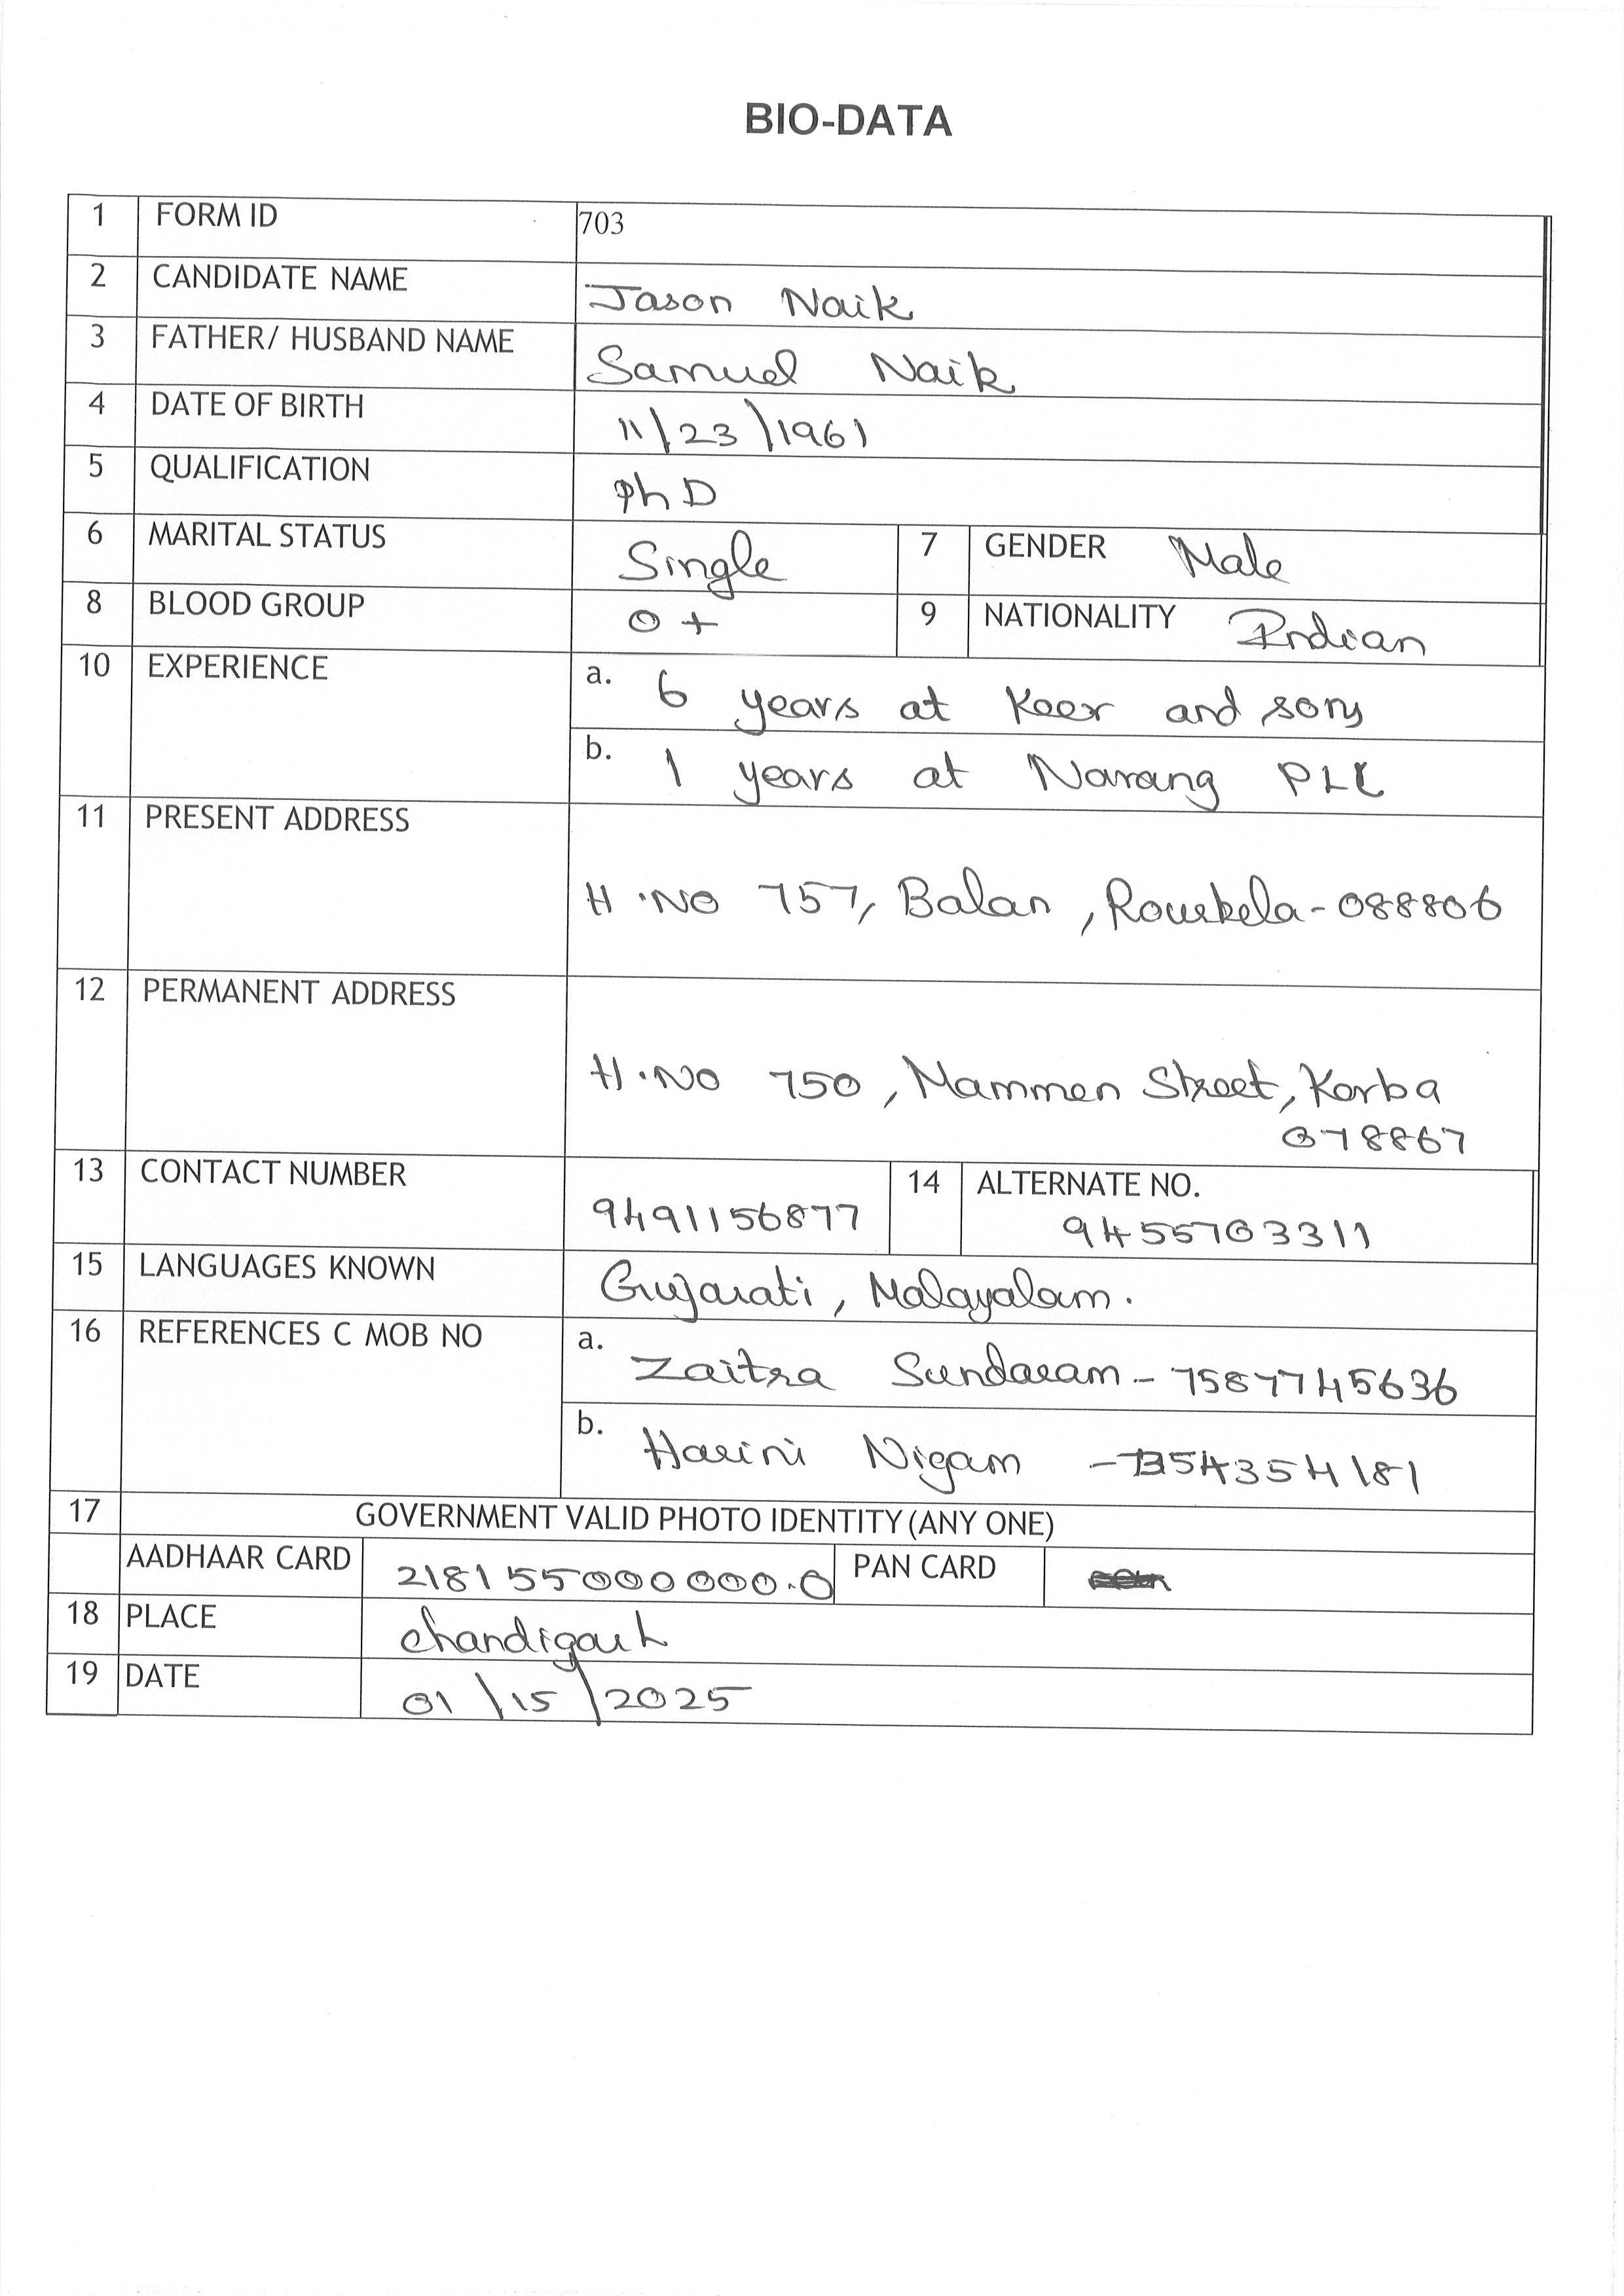 BIO-DATA
1 FORM ID 703
2 CANDIDATE NAME Jason Naik
3 FATHER/ HUSBAND NAME Samuel Naik
4 DATE OF BIRTH 11/23/1961
5 QUALIFICATION PhD
6 MARITAL STATUS Single 7 GENDER Male
8 BLOOD GROUP O+ 9 NATIONALITY Indian
10 EXPERIENCE a. 6 years at Keer and sons
b. 1 years at Narang PLC
11 PRESENT ADDRESS
H.NO 757, Balan, Rourkela-088806
12 PERMANENT ADDRESS
H.NO 750, Mammen Street, Korba
078867
13 CONTACT NUMBER 9491156877 14 ALTERNATE NO.
9455703311
15 LANGUAGES KNOWN Gujarati, Malayalam.
16 REFERENCES C MOB NO a. Zaitra Sundaram - 7587745636
b. Harini Nigam -
17 GOVERNMENT VALID PHOTO IDENTITY (ANY ONE)
AADHAAR CARD 218155000000.0 PAN CARD
18 PLACE Chandigarh
19 DATE 01/15/2025